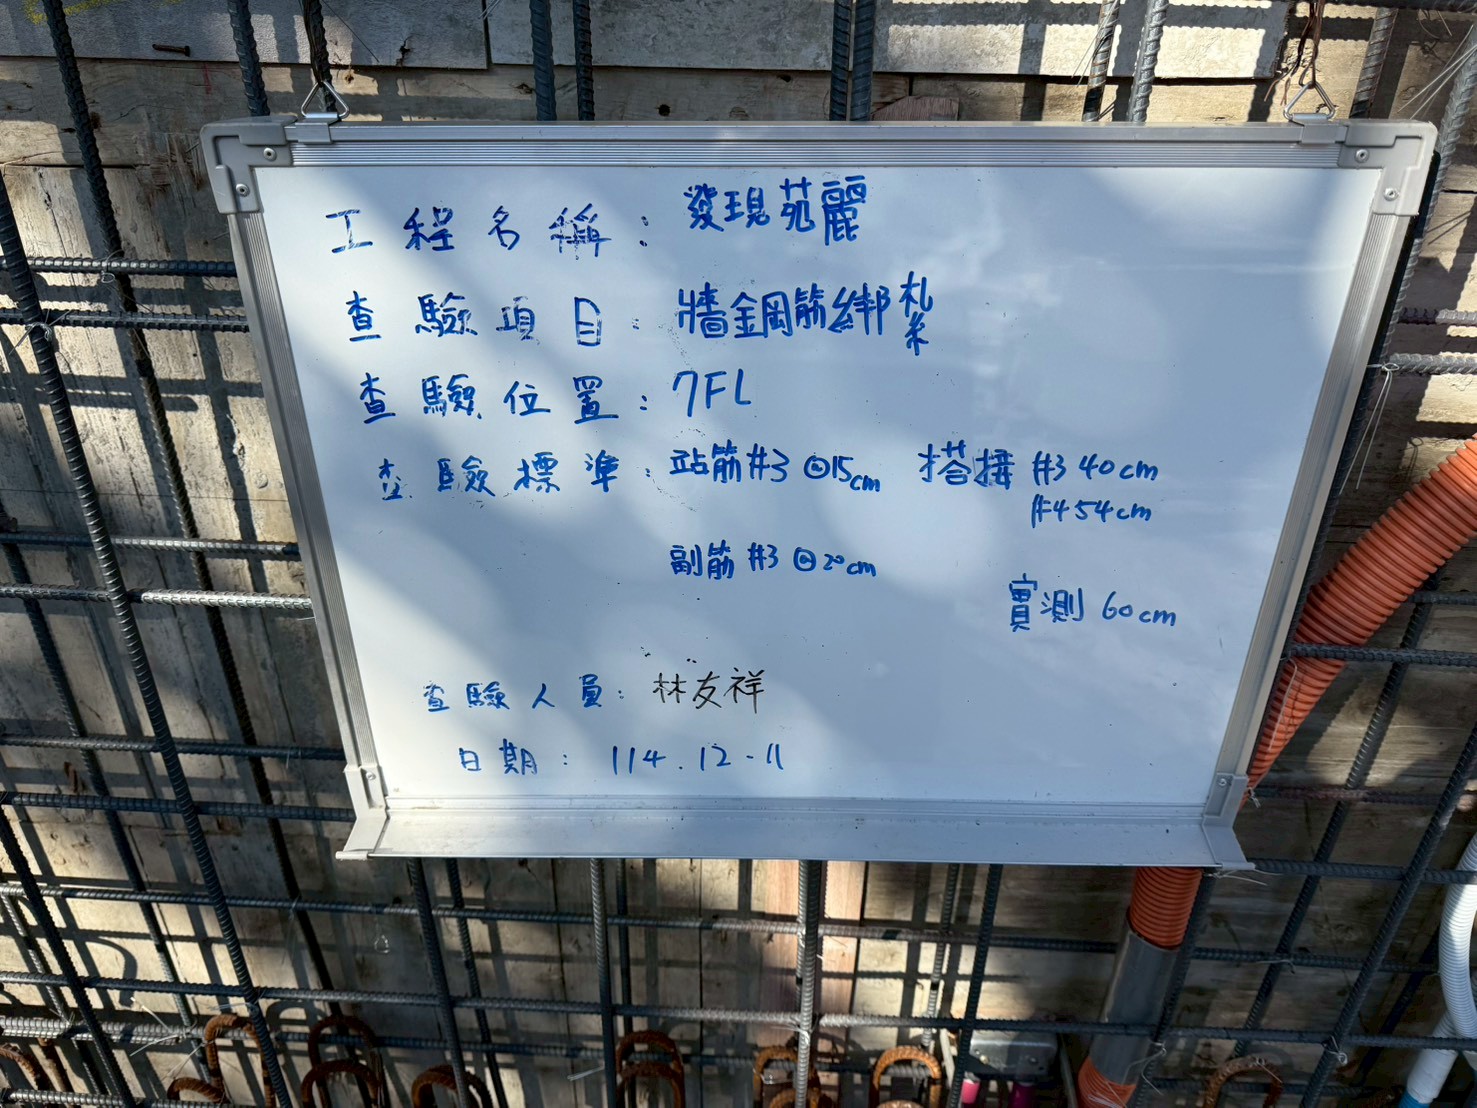 工程名稱：發現苑麗
查驗項目：牆鋼筋綁札紮
查驗位置：7FL
查驗標準：站筋#3 @15cm 搭接 #3 40cm
#4 54cm
副筋#3 @20cm
實測 60cm
查驗人員：林友祥
日期：114.12.11